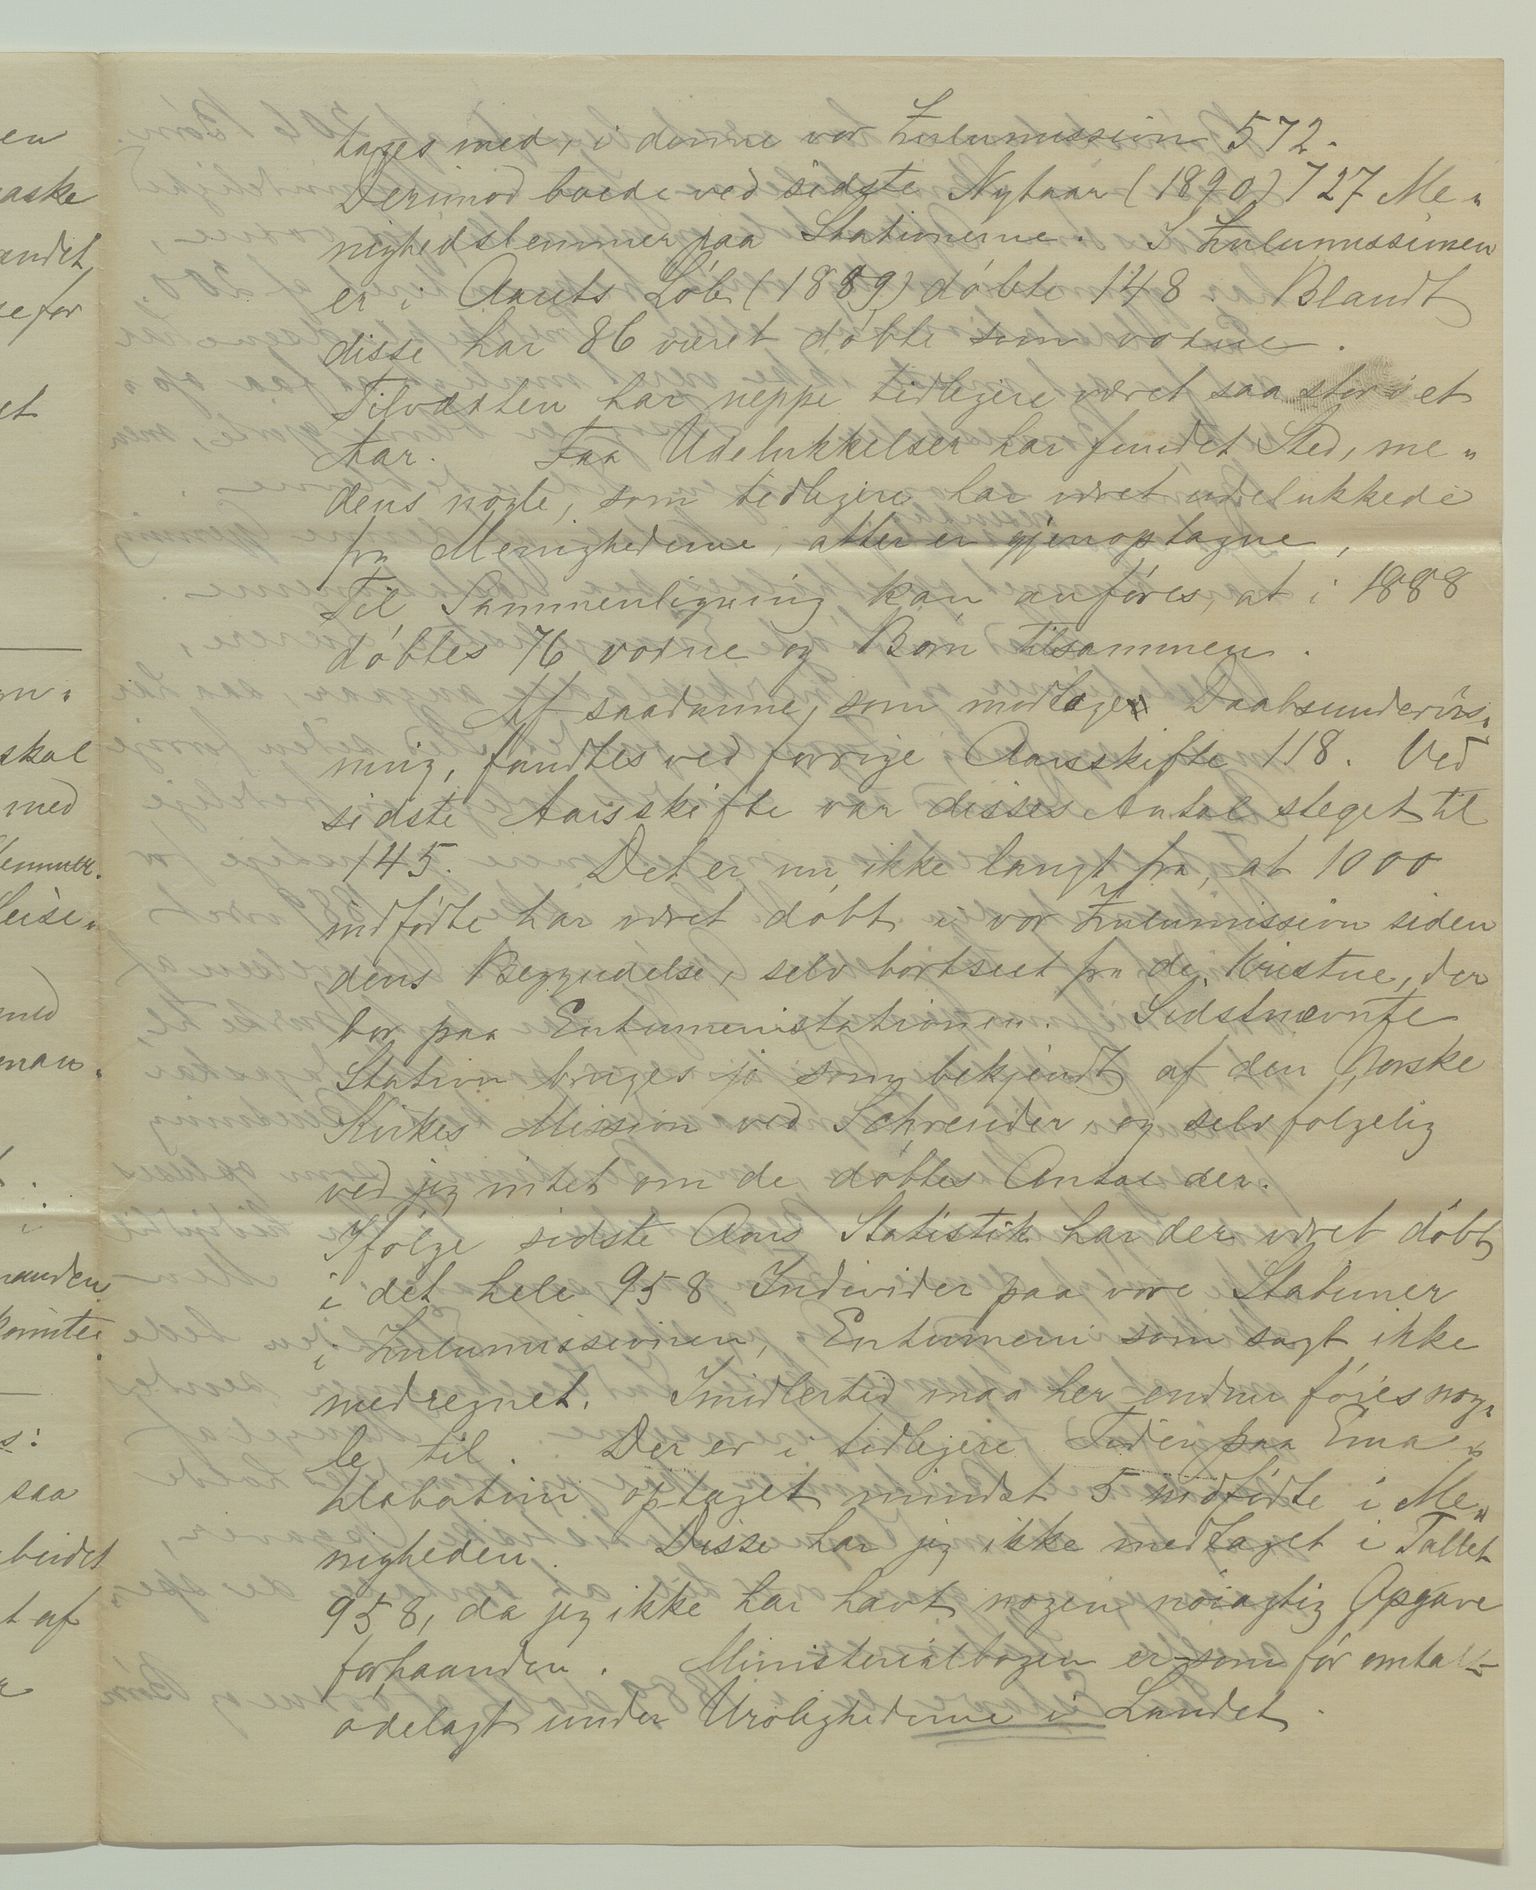 tages med, i denne vor Zulumission 572.
Derimod boede ved sidste Nytaar (1890) 727 Me-
nighedslemmer paa Stationerne. I Zulumissionen
er i Aarets Løb (1889) døbte 148. Blandt
disse har 86 været døbte som voxne.
Tilvæxten har neppe tidligere været saa stor i et
Aar. Faa Udelukkelser har fundet Sted, me-
dens nogle, som tidligere har været udelukkede
fra Menighederne, atter er gjenoptagne,
Til Sammenligning kan anføres, at i 1888
døbtes 76 voxne og Børn tilsammen.
Af saadanne, som modtager Daabsundervis-
ning, fandtes ved forrige Aarsskifte 118. Ved
sidste Aarsskifte var disses Antal steget til
145. Det er nu ikke langt fra, at 1000
indfødte har været døbt i vor Zulumission siden
dens Begyndelse, selv bortseet fra de Kristne, der
bor paa Entumenistationen. Sidstnævnte
Station bruges jo som bekjendt af den Norske
Kirkes Mission ved Schreuder, og selvfølgelig
ved jeg intet om de døbtes Antal der.
Ifølge sidste Aars Statistik har der været døbt
i det hele 958 Individer paa vore Stationer
i Zulumissionen, Entumeni som sagt ikke
medregnet. Imidlertid maa her endnu føies nog-
le til. Der er i tidligere Tider paa Ema-
hlabatini optaget mindst 5 indfødte i Me-
nigheden. Disse har jeg ikke medtaget i Tallet
958, da jeg ikke har havt nogen nøiagtig Opgave
forhaanden. Ministerialbogen er som før omtalt
ødelagt under Urolighederne i Landet.
en
maske
andet
se for
et
skal
med
lemmer.
med
i
Komite
s:
saa
t af